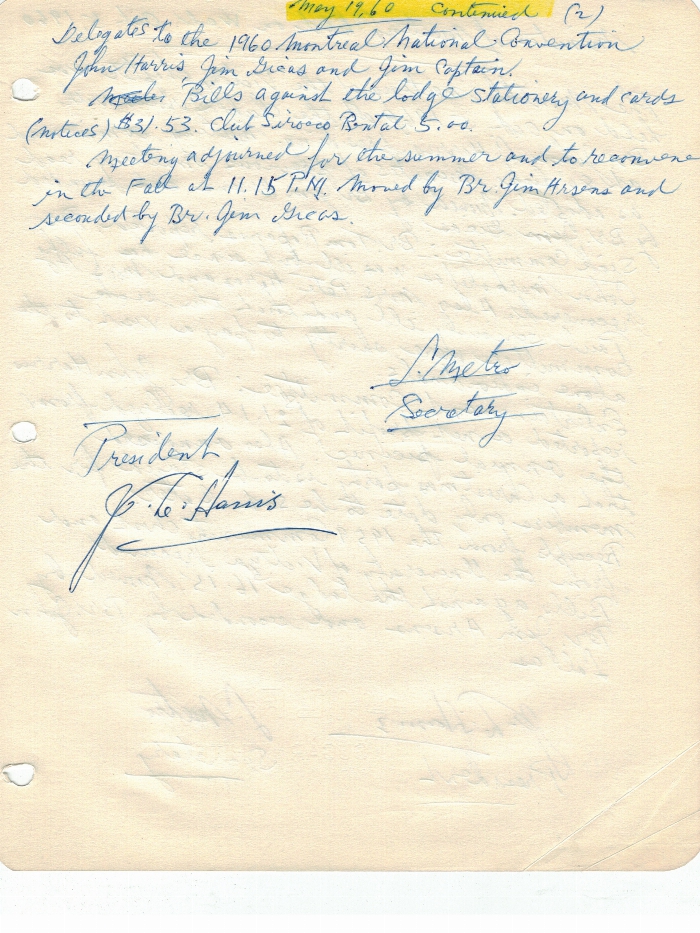 May 19, 60 continued (2)
Delegates to the 1960 Montreal National Convention
John Harris, Jim Gicas and Jim Captain.
Bills against the lodge stationery and cards
(notices) $31.53. Club Sirocco Rental 5.00.
Meeting adjourned for the summer and to reconvene
in the Fall at 11.15 P.M. Moved by Br. Jim Arsens and
seconded by Br. Jim Gicas.
S. Metro
Secretary
President
J. C. Harris